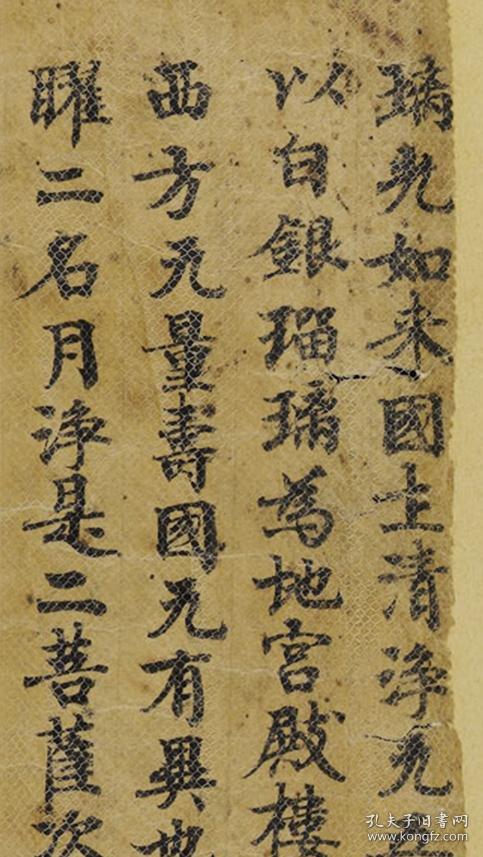 璃光如来國土清浄无
以白銀瑠璃為地宫殿樓
西方无量壽國无有異也
曜二名月浄是二菩薩次
孔夫子旧書网
kongfz.com